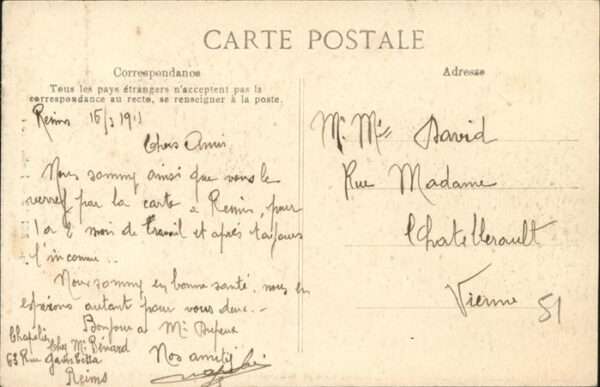 CARTE POSTALE
Correspondance
Adresse
Tous les pays étrangers n'acceptent pas la
correspondance au recto, se renseigner à la poste.
Reims 16/3 1911
Chers Amis
Nous somm ainsi que vous le
verrez par la carte a Reims, pour
1 a 2 mois de travail et après toujours
l'inconnu..
Nous somm en bonne santé. nous en
espérons autant pour vous deux..
Bonjour a Mr
Nos amitiés
Chapelier
Chez Mr Bénard
63 Rue Gambetta
Reims
Mr Mme David
Rue Madame
Chatellerault
Vienne
51